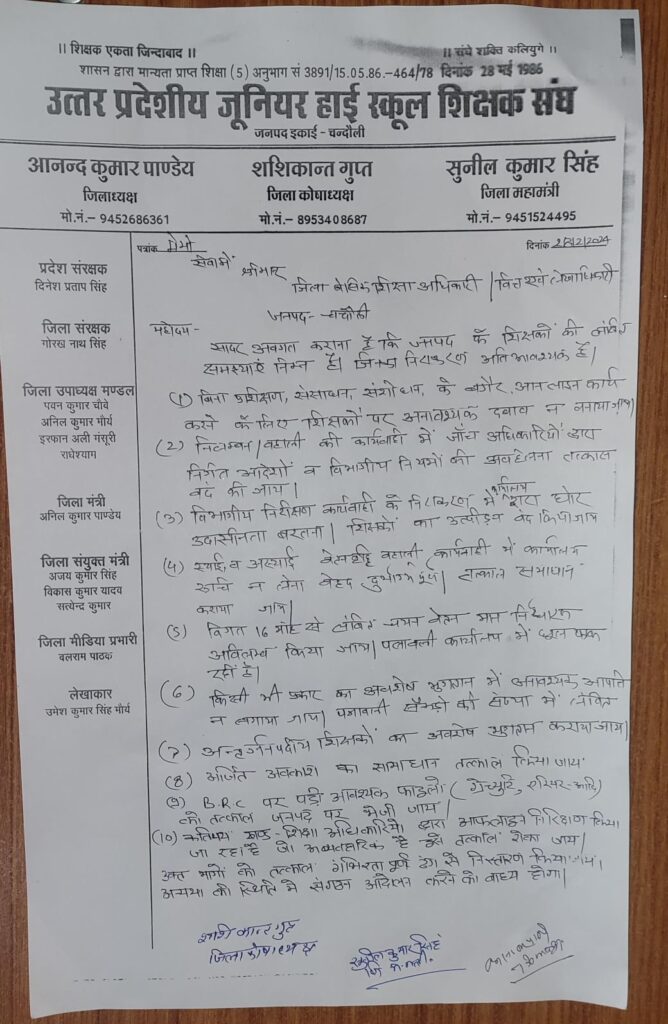 ।। शिक्षक एकता जिन्दाबाद ।।
।। संघे शक्ति कलियुगे ।।
शासन द्वारा मान्यता प्राप्त शिक्षा (5) अनुभाग सं 3891/15.05.86.-464/78 दिनांक 28 मई 1986
उत्तर प्रदेशीय जूनियर हाई स्कूल शिक्षक संघ
जनपद इकाई - चन्दौली
आनन्द कुमार पाण्डेय
जिलाध्यक्ष
मो.नं.– 9452686361
शशिकान्त गुप्त
जिला कोषाध्यक्ष
मो.नं.– 8953408687
सुनील कुमार सिंह
जिला महामंत्री
मो.नं.– 9451524495
प्रदेश संरक्षक
दिनेश प्रताप सिंह
जिला संरक्षक
गोरख नाथ सिंह
जिला उपाध्यक्ष मण्डल
पवन कुमार चौबे
अनिल कुमार मौर्य
इरफान अली मंसूरी
राधेश्याम
जिला मंत्री
अनिल कुमार पाण्डेय
जिला संयुक्त मंत्री
अजय कुमार सिंह
विकास कुमार यादव
सत्येन्द्र कुमार
जिला मिडिया प्रभारी
बलराम पाठक
लेखाकार
उमेश कुमार सिंह मौर्य
पत्रांक मेमो
दिनांक 2/12/2024
सेवामें
श्रीमान्
जिला बेसिक शिक्षा अधिकारी / वित्त एवं लेखाधिकारी
जनपद- चन्दौली
महोदय-
सादर अवगत कराना है कि जनपद के शिक्षकों की लंबित
समस्याएं निम्न है। जिनका निराकरण अतिआवश्यक है।
(1) बिना प्रशिक्षण, संसाधन, संशोधन, के बगैर, आनलाइन कार्य
करने के लिए शिक्षकों पर अनावश्यक दबाव न बनाया जाय।
(2) निलम्बन/बहाली की कार्यवाही में जाँच अधिकारियों द्वारा
निर्गत आदेशों व विभागीय नियमों की अवहेलना तत्काल
बंद की जाय।
(3) विभागीय निरीक्षण कार्यवाही के निराकरण में कार्यालय द्वारा घोर
उदासीनता बरतना। शिक्षकों का उत्पीड़न बंद किया जाय
(4) स्थाई, व अस्थाई वेतनवृद्धि बहाली कार्यवाही में कार्यालय
रुचि न लेना बेहद दुर्भाग्यपूर्ण। तत्काल समाधान
कराया जाय।
(5) विगत 16 माह से लंबित चयन वेतनमान निर्धारण
अविलम्ब किया जाय। पत्रावली कार्यालय में धूल फांक
रही है।
(6) किसी भी प्रकार का अवशेष भुगतान में अनावश्यक आपत्ति
न लगाया जाय। पत्रावली सैकड़ो की संख्या में लंबित
(7) अन्तर्जनपदीय शिक्षकों का अवशेष भुगतान कराया जाय।
(8) अर्जित अवकाश का समाधान तत्काल किया जाय
(9) B.R.C पर पड़ी आवश्यक फाइलो (ग्रेच्युटी, एरियर-आदि)
को तत्काल जनपद पर भेजी जाय।
(10) कतिपय खण्ड-शिक्षा अधिकारियो द्वारा आफलाइन निरिक्षण किया
जा रहा है जो अव्यवहारिक है इसे तत्काल रोका जाय।
उक्त मांगों को तत्काल गंभिरता पूर्ण ढंग से निस्तारण किया जाय,
अन्यथा की स्थिति में संगठन आंदोलन करने को बाध्य होगा।
शशि कान्त गुप्त
जिला कोषाध्यक्ष
सुनील कुमार सिंह